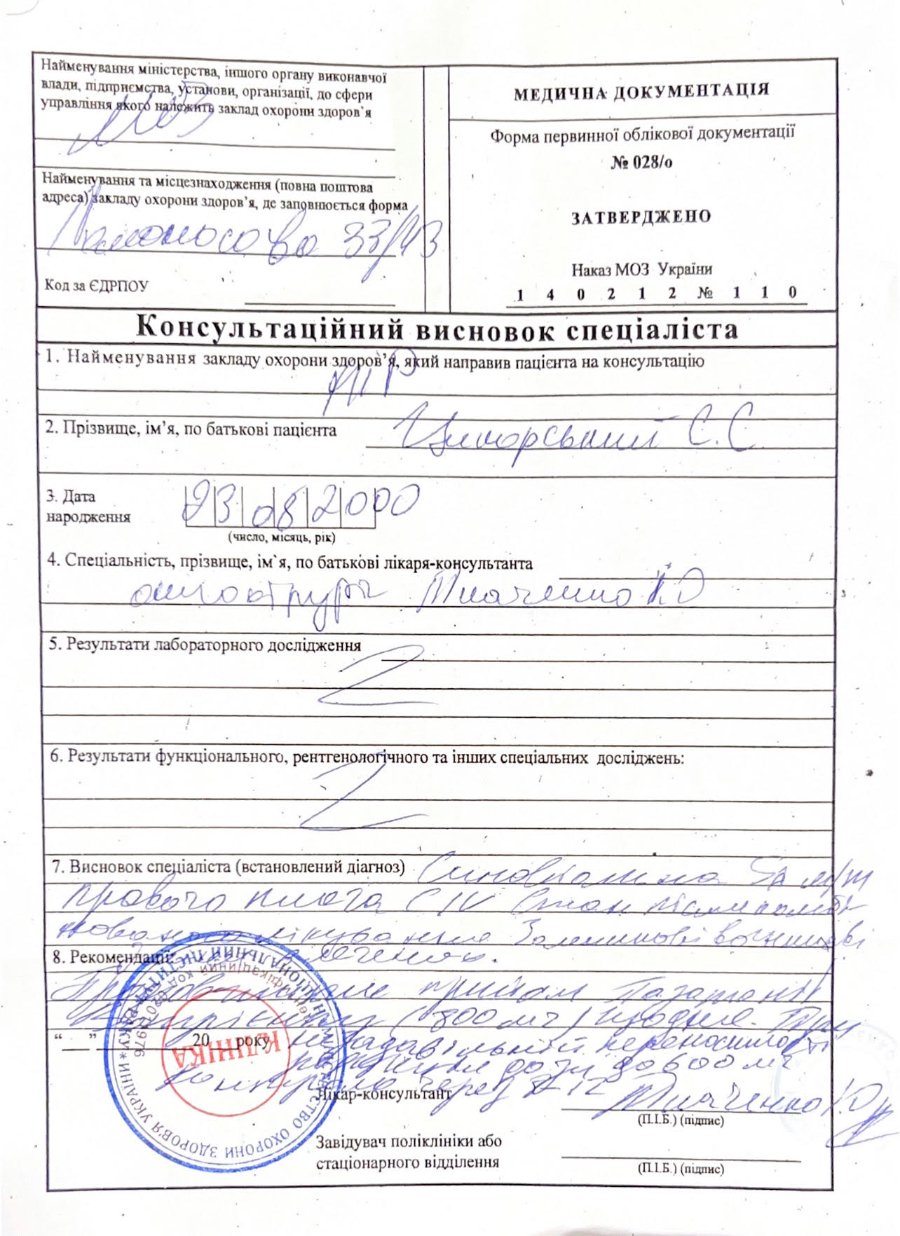 Найменування міністерства, іншого органу виконавчої
влади, підприємства, установи, організації, до сфери
управління якого належить заклад охорони здоров`я
МОЗ
Найменування та місцезнаходження (повна поштова
адреса) закладу охорони здоров’я, де заповнюється форма
Ломоносова 33/43
Код за ЄДРПОУ
МЕДИЧНА ДОКУМЕНТАЦІЯ
Форма первинної облікової документації
№ 028/о
ЗАТВЕРДЖЕНО
Наказ МОЗ України
1 4 0 2 1 2 № 1 1 0
Консультаційний висновок спеціаліста
1. Найменування закладу охорони здоров’я, який направив пацієнта на консультацію
2. Прізвище, ім’я, по батькові пацієнта
С.С
3. Дата
народження
23 08 2000
(число, місяць, рік)
4. Спеціальність, прізвище, ім`я, по батькові лікаря-консультанта
Ткаченко
5. Результати лабораторного дослідження
6. Результати функціонального, рентгенологічного та інших спеціальних досліджень:
7. Висновок спеціаліста (встановлений діагноз) Синовіальна
правого плеча Стан після
лікування
8. Рекомендації:
прийом
(800 мг) щодня. При
незадовільній переносимості
дози до 600 мг
контроль через
“ ” 20 року
МІНІСТЕРСТВО ОХОРОНИ ЗДОРОВ'Я УКРАЇНИ
КЛІНІКА
Лікар-консультант Ткаченко
(П.І.Б.) (підпис)
Завідувач поліклініки або
стаціонарного відділення
(П.І.Б.) (підпис)